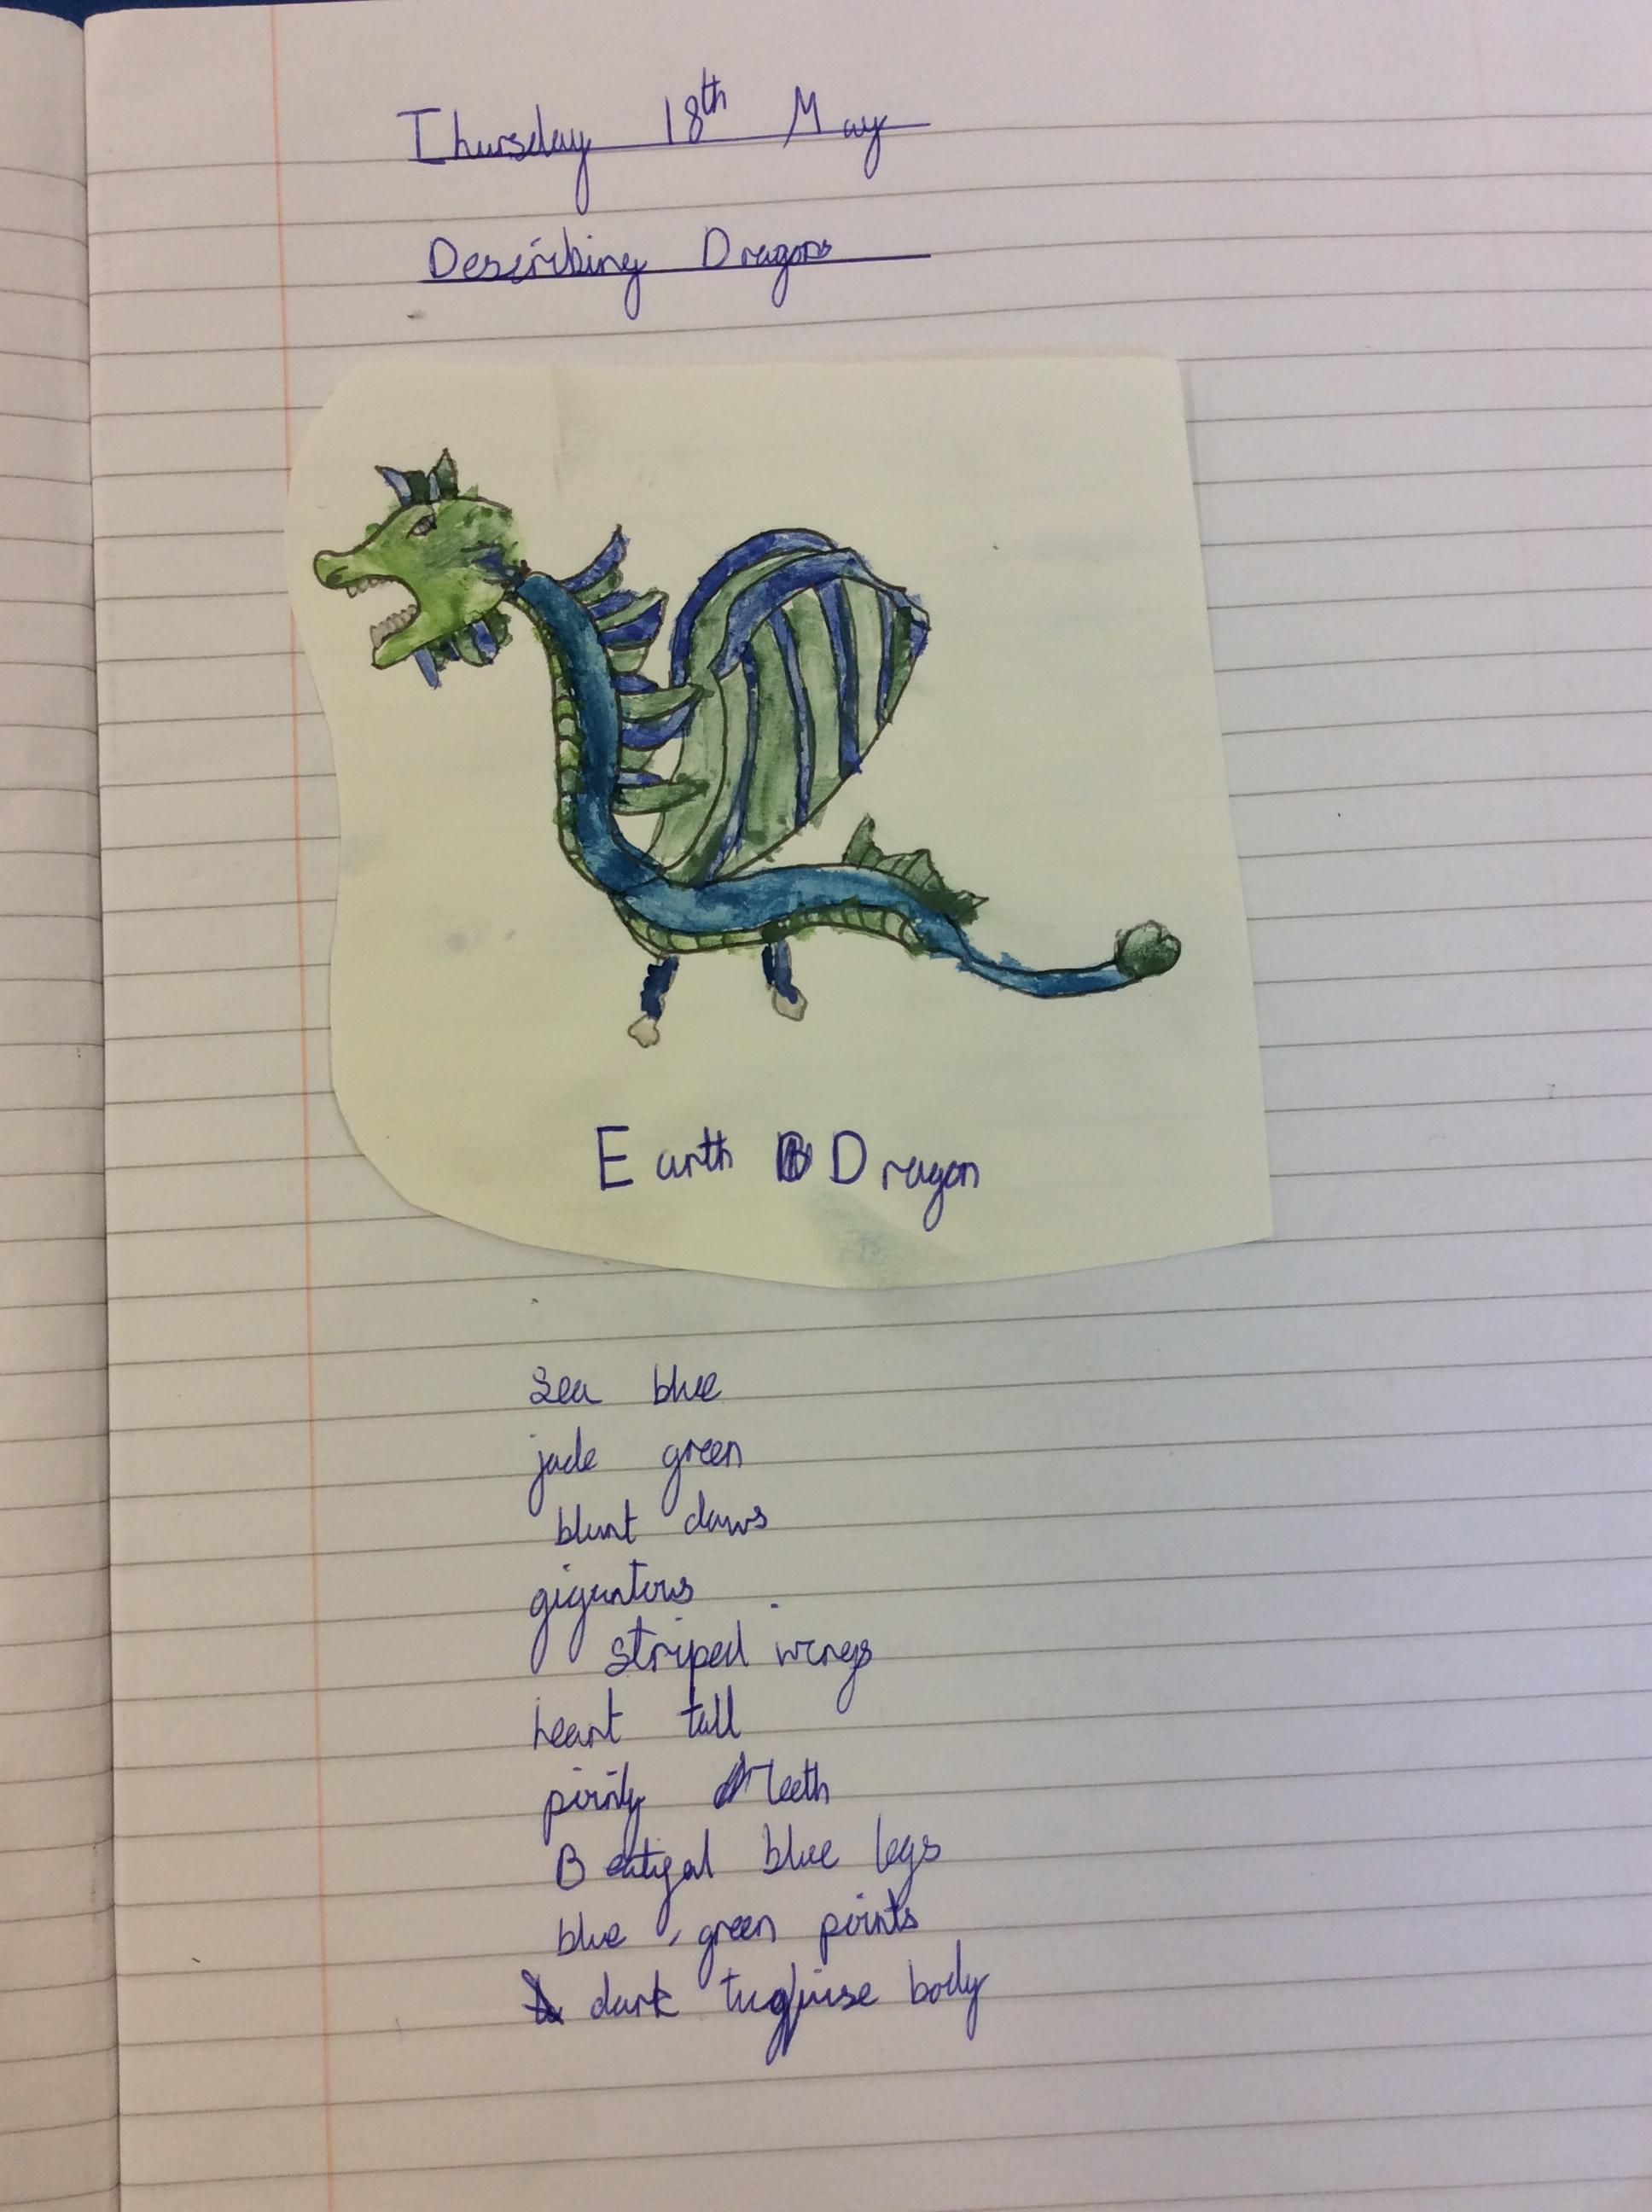 Thursday 18th May
Describing Dragons
Earth Dragon
Sea blue
jade green
blunt claws
gigantous
striped wings
heart tall
pointy teeth
Beatigal blue legs
blue, green points
dark tuqpuise body